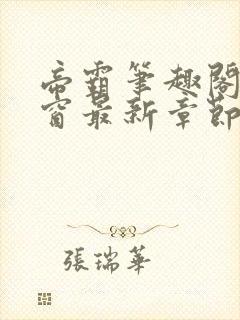 帝霸筆趣閣
窗最新章節
張瑞華